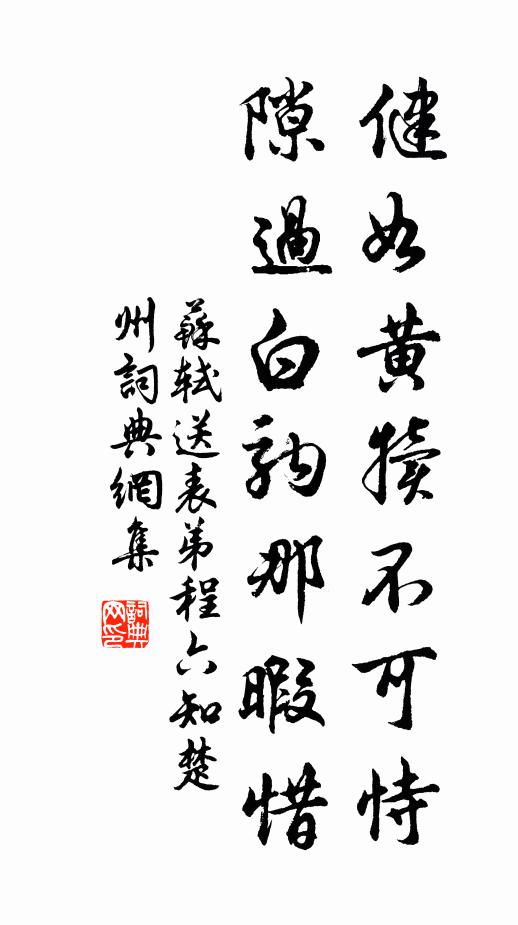 健如黃犢不可恃
隙過白駒那暇惜
蘇軾送表弟程六知楚
州詞典網集